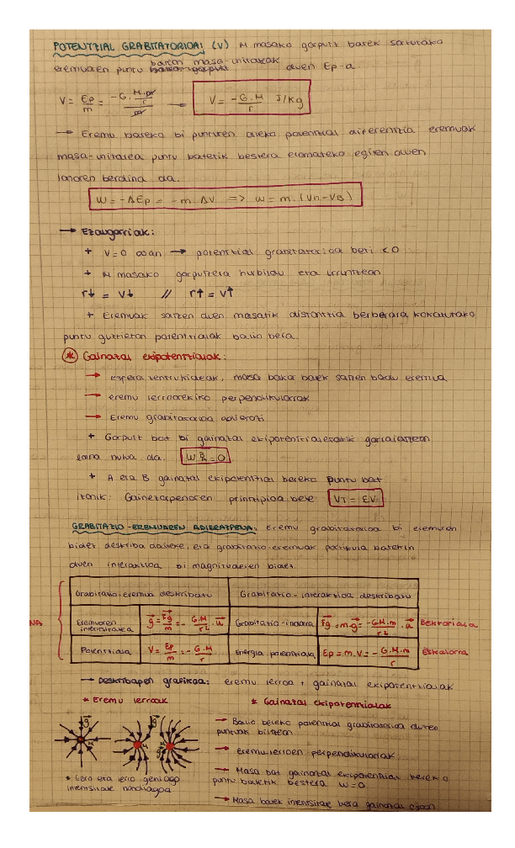 POTENTZIAL GRABITATORIOA: (V) M masako gorputz batek sortutako
eremuaren puntu batean masa-unitateak duen Ep-a.
V = Ep/m = -G·M·m/r / m → V = -G·M/r J/kg
→ Eremu bereko bi punturen arteko potentzial diferentzia eremuak
masa-unitatea puntu batetik bestera eramateko egiten duen
lanaren berdina da.
W = -ΔEp = -m·ΔV => W = m·(VA-VB)
→ Ezaugarriak:
+ V=0 ∞an → potentzial grabitatorioa beti < 0
+ M masako gorputzera hurbildu eta urruntzean
r↓ = V↓ // r↑ = V↑
+ Eremuak sortzen duen masatik distantzia berberara kokatutako
puntu guztien potentzialak balio bera.
* Gainazal ekipotentzialak:
→ esfera zentrukideak, masa bakar batek sortzen badu eremua
→ eremu lerroarekiko perpendikularrak
→ Eremu grabitatorioa adierazi
+ Gorputz bat bi gainazal ekipotentzialetatik garraiatzean
lana nulua da. W = 0
+ A eta B gainazal ekipotentzial bereko puntu bat
izanik: Gainezarpenaren printzipioa bete VT = ΣV
GRABITAZIO-EREMUAREN ADIERAZPENA: eremu grabitatorioa bi eremuren
bidez deskriba daiteke, eta grabitazio-eremuak partikula batekin
duen interakzioa bi magnituderen bidez.
Grabitazio-eremua deskribatu Grabitazio-interakzioa deskribatu
Eremuaren intentsitatea g = Fg/m = -G·M/r² · u Grabitazio-indarra Fg = m·g = -G·M·m/r² · u Bektoriala
Potentziala V = Ep/m = -G·M/r Energia potentziala Ep = m·V = -G·M·m/r Eskalarra
→ Deskribapen grafikoa: eremu lerroa + gainazal ekipotentzialak
* Eremu lerroak * Gainazal ekipotentzialak
→ Balio bereko potentzial grabitatorioa duten
puntuak biltzean
→ Eremu lerroen perpendikularrak
→ Masa bat gainazal ekipotentzial bereko
puntu batetik bestera W=0
* Gero eta lerro gehiago
intentsitate handiagoa
→ Masa batek intentsitate bera gainazal osoan